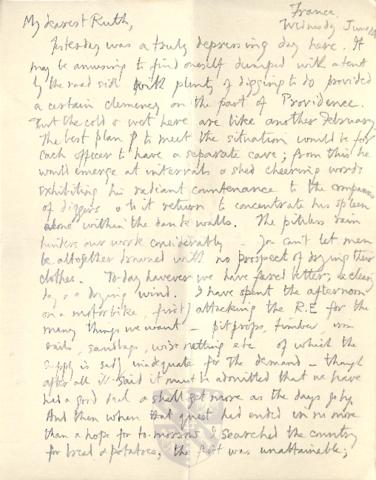 France
Wednesday June
My dearest Ruth,
Yesterday was a truly depressing day here. It
may be amusing to find oneself dumped with a tent
by the road side with plenty of digging to do provided
a certain clemency on the part of Providence.
But the cold & wet here are like another February.
The best plan to meet the situation would be for
each officer to have a separate cave; from this he
would emerge at intervals & shed cheering words
exhibiting his radiant countenance to the companies
of diggers & return to concentrate his spleen
alone within the dank walls. The pitiless rain
hinders our work considerably - You can't let men
be altogether drowned with no prospect of drying their
clothes. To-day however we have fared better; a clear
day, & a drying wind. I have spent the afternoon
on a motorbike, first attacking the R.E for the
many things we want - pitprops, timber, iron
rails, sandbags, wire netting etc of which the
supply is sadly inadequate for the demand - though
after all is said it must be admitted that we have
had a good deal & shall get more as the days go by.
And then when that quest had ended in no more
than a hope for to-morrow I searched the country
for bread & potatoes; the was unattainable;